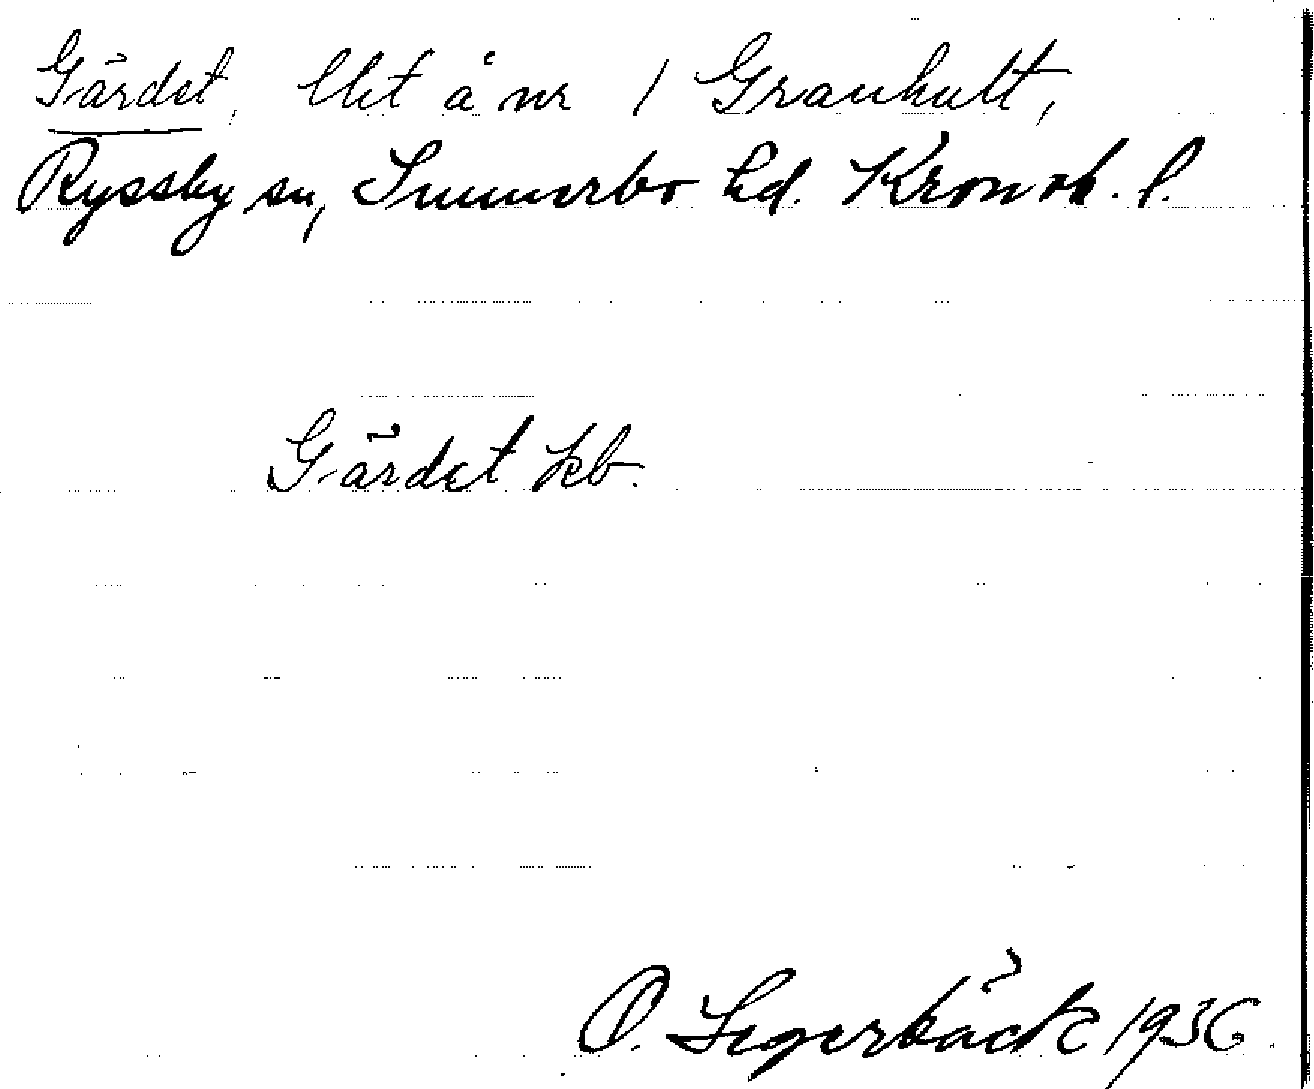 Gärdet, lht å nr 1 Granhult,
Ryssby sn, Sunnerbo hd. Kronob. l.
Gärdet kb.
O. Segerbäck 1936